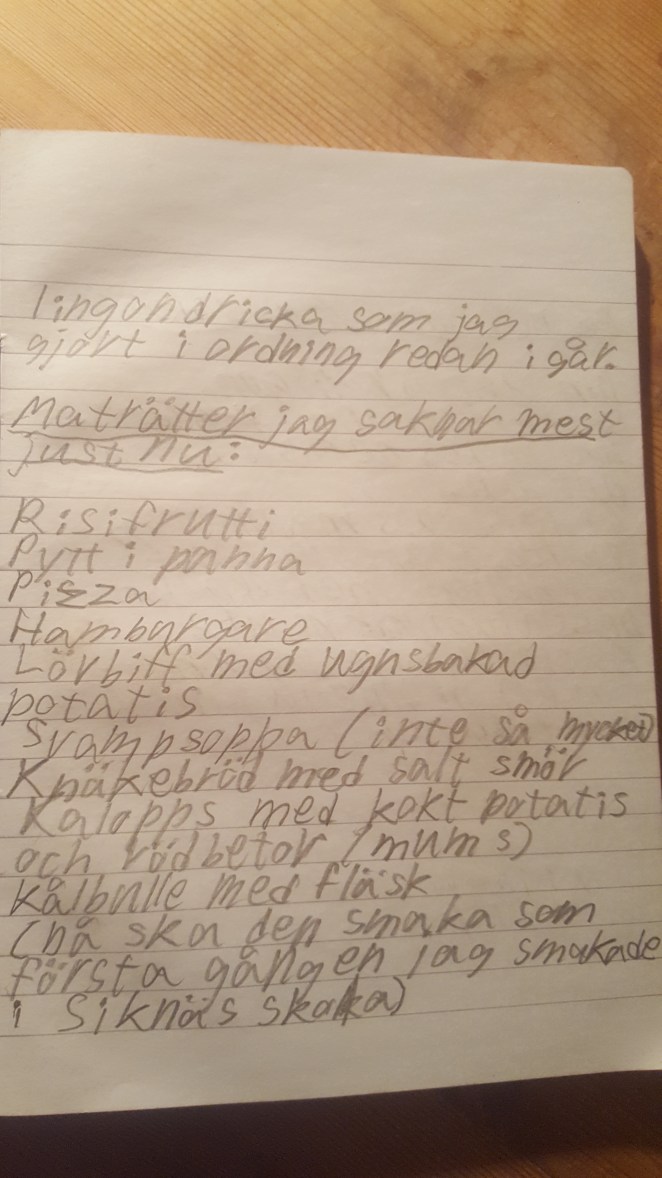 lingondricka som jag
gjort i ordning redan i går.
Maträtter jag saknar mest
just nu:
Risifrutti
Pytt i panna
Pizza
Hamburgare
Lövbiff med ugnsbakad
potatis
Svampsoppa (inte så mycket)
Knäkebröd med salt smör
Kalopps med kokt potatis
och rödbetor (mums)
Kålbulle med fläsk
(då ska den smaka som
första gången jag smakade
i Siknäs skola)